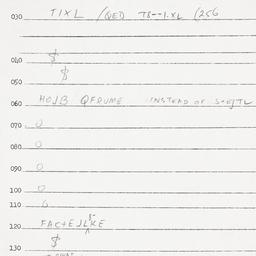 030 TIXL /QED T8--1.XL (256
040 $
$
050
060 HOJB QFRUME INSTEAD OF
070 O
080 O
090 O
100 O
110 O
120 FAC+EJLKE
$
130